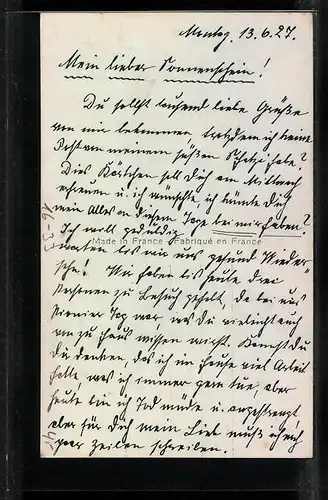 Montag. 13.6.27.
Mein lieber Sonnenschein!
Du sollst tausend liebe Grüße
von mir bekommen, trotzdem ich keine
Post von meinem süßen Schatzi habe?
Dies Kärtchen soll dich am Mittwoch
erfreuen u. ich wünschte ich könnte dich
mein Alles an diesem Tage bei mir haben?
Ich will geduldig
Made in France - Fabriqué en France
warten bis wir uns gesund Wieder-
sehe! Wir haben bis heute drei
Personen zu Besuch gehabt, da bei uns
Tag war, was du vielleicht auch
von zu Haus wissen wirst. Kannst du
dir denken, das ich im Hause viel Arbeit
hatte, was ich immer gern tue, aber
heute bin ich Tod müde u. angestrengt,
aber für Dich mein Lieb muß ich noch
paar Zeilen schreiben.
16-33